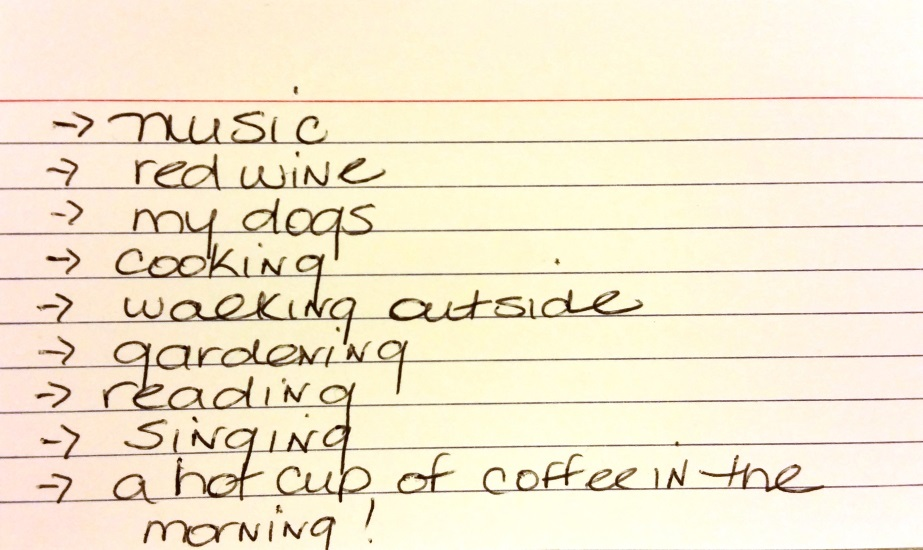 → music
→ red wine
→ my dogs
→ cooking
→ walking outside
→ gardening
→ reading
→ singing
→ a hot cup of coffee in the
morning!